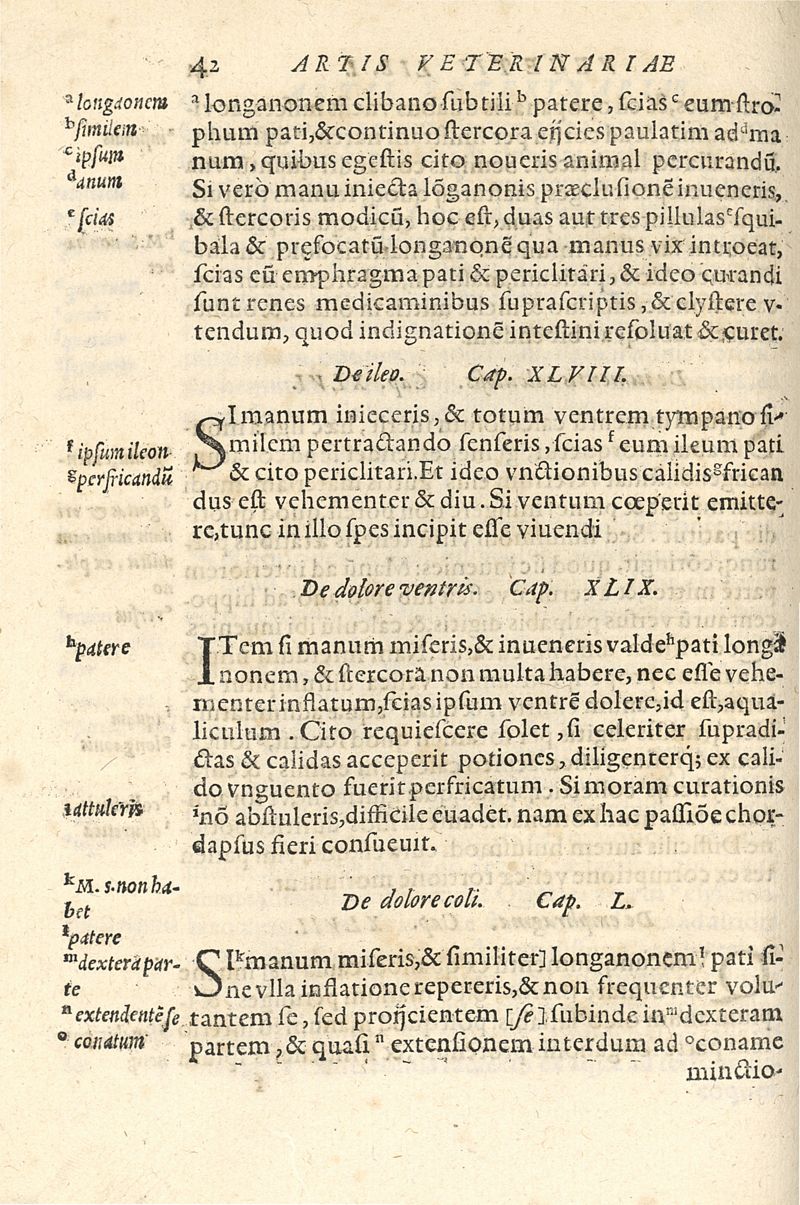 42 ARTIS VETERINARIAE
ᵃ longaonem
ᵇ similem
ᶜ ipsum
ᵈ anum
ᵉ scias
ᵃ longanonem clibano subtili ᵇ patere, scias ᶜ eum stro-
phum pati, & continuo stercora eijcies paulatim ad ᵈ ma
num, quibus egestis cito noueris animal percurandū.
Si verò manu iniecta lōganonis præclusionē inueneris,
& stercoris modicū, hoc est, duas aut tres pillulas ᵉ squi-
bala & pręfocatū longanonē qua manus vix introeat,
scias eū emphragma pati & periclitari, & ideo curandi
sunt renes medicaminibus suprascriptis, & clystere v-
tendum, quod indignationē intestini resoluat & curet.
De ileo. Cap. XLVIII.
ᶠ ipsum ileon
ᵍ perfricandū
SI manum inieceris, & totum ventrem tympano si-
milem pertractando senseris, scias ᶠ eum ileum pati
& cito periclitari. Et ideo vnctionibus calidis ᵍ frican
dus est vehementer & diu. Si ventum cœperit emitte-
re, tunc in illo spes incipit esse viuendi
De dolore ventris. Cap. XLIX.
ʰ patere
ⁱ attuleris
ITem si manum miseris, & inueneris valde ʰ pati longā
nonem, & stercora non multa habere, nec esse vehe-
menter inflatum, scias ipsum ventrē dolere, id est, aqua-
liculum. Cito requiescere solet, si celeriter supradi-
ctas & calidas acceperit potiones, diligenterq́; ex cali-
do vnguento fuerit perfricatum. Si moram curationis
ⁱ nō abstuleris, difficile euadet. nam ex hac passiōe chor-
dapsus fieri consueuit.
De dolore coli. Cap. L.
ᵏ M. s. non ha-
bet
ˡ patere
ᵐ dextera par-
te
ⁿ extendentē se
ᵒ conatum
SI ᵏ manum miseris, & similiter] longanonem ˡ pati si-
ne vlla inflatione repereris, & non frequenter volu-
tantem se, sed proijcientem [se] subinde in ᵐ dexteram
partem, & quasi ⁿ extensionem interdum ad ᵒ coname
minctio-